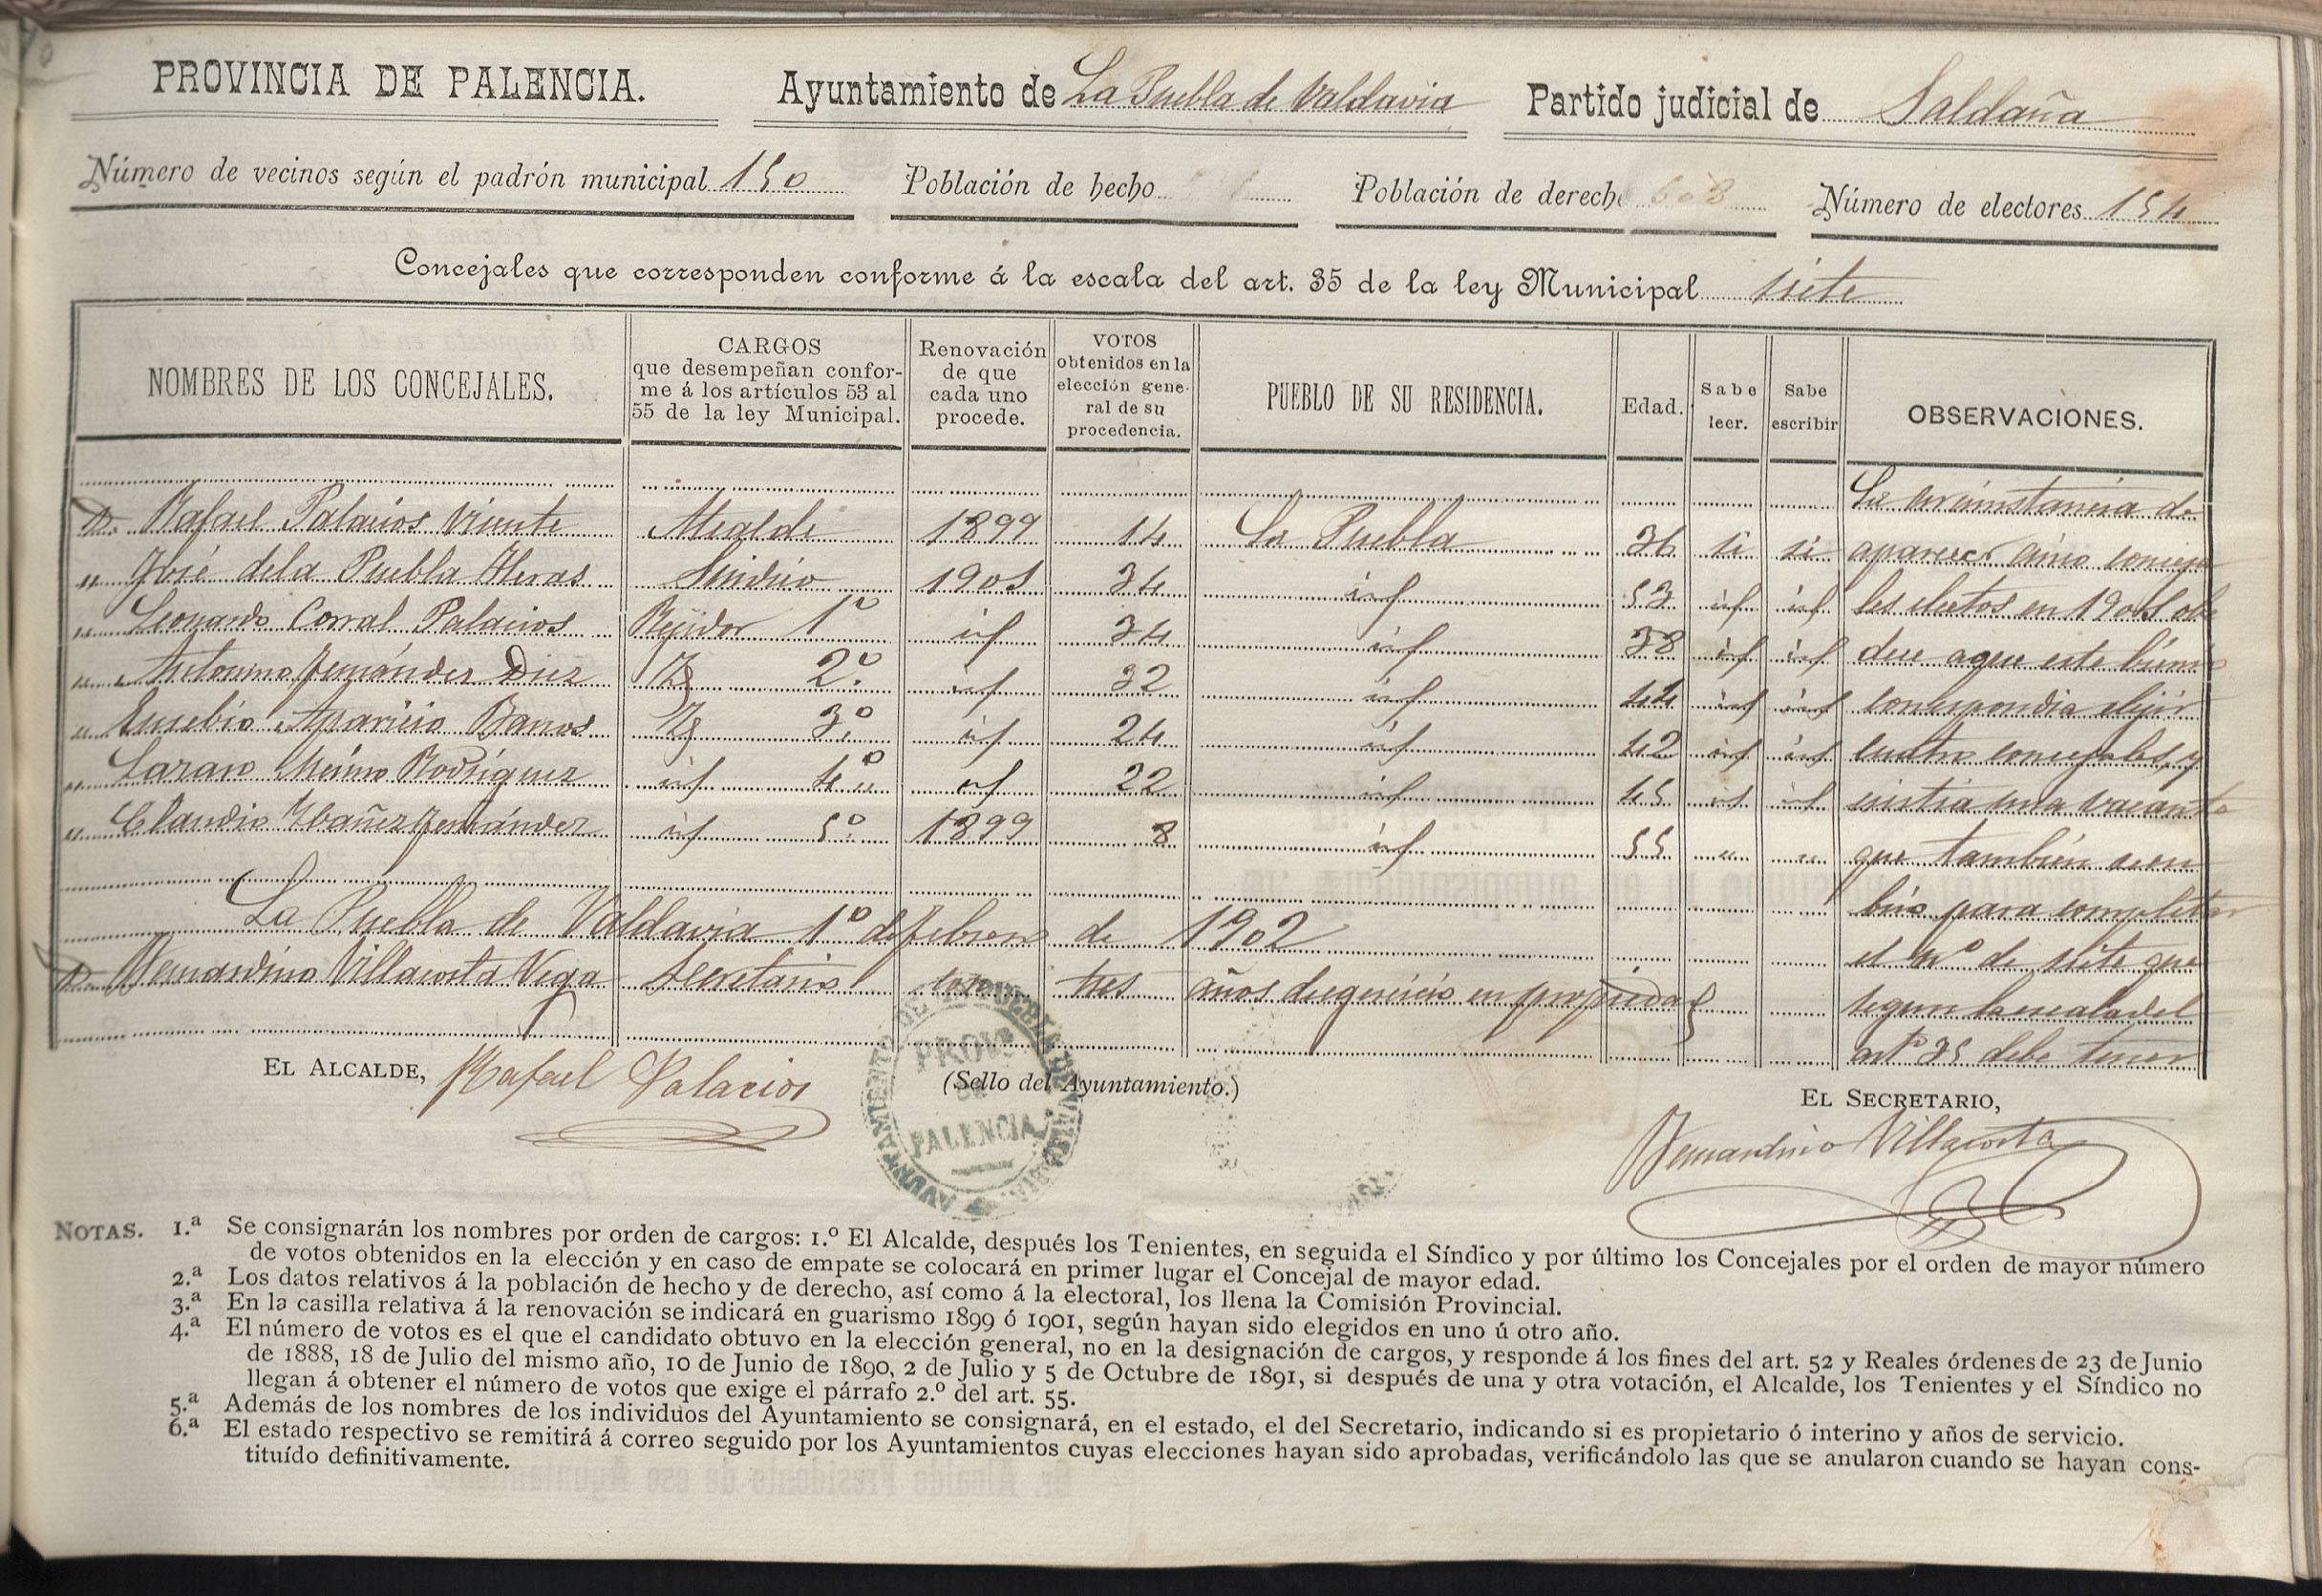 PROVINCIA DE PALENCIA. Ayuntamiento de La Puebla de Valdavia Partido judicial de Saldaña
Número de vecinos según el padrón municipal 150 Población de hecho Población de derecho 603 Número de electores 154
Concejales que corresponden conforme á la escala del art. 35 de la ley Municipal siete
NOMBRES DE LOS CONCEJALES.
CARGOS
que desempeñan confor-
me á los artículos 53 al
55 de la ley Municipal.
Renovación
de que
cada uno
procede.
VOTOS
obtenidos en la
elección gene-
ral de su
procedencia.
PUEBLO DE SU RESIDENCIA.
Edad.
Sabe
leer.
Sabe
escribir
OBSERVACIONES.
D. Rafael Palacios Vicente Alcalde 1899 14 La Puebla 36 si si
" José dela Puebla Heras Sindico 1901 34 id 53 id id
" Leonardo Corral Palacios Rejidor 1º id 34 id 38 id id
" Antonino Fernández Diez Id 2º id 32 id 44 id id
" Eusebio Aparicio Barros Id 3º id 24 id 42 id id
" Lazaro Merino Rodríguez id 4º id 22 id 45 id id
" Claudio Ibañez Fernández id 5º 1899 8 id 55 " "
La circunstancia de
aparecer cinco conceja
les electos en 1901 obe
dece aque este bienio
correspondia elejir
cuatro concejales, y
existia una vacante
que también se cu
brio para completar
el nº de siete que
segun la escala del
artº 35 debe tener
La Puebla de Valdavia 1º de febrero de 1902
D. Bernardino Villacorta Vega Secretario con tres años de ejercicio en propiedad
EL ALCALDE, Rafael Palacios
(Sello del Ayuntamiento.)
PROVª
DE
PALENCIA
EL SECRETARIO,
Bernardino Villacorta
NOTAS. 1.ª Se consignarán los nombres por orden de cargos: 1.º El Alcalde, después los Tenientes, en seguida el Síndico y por último los Concejales por el orden de mayor número
de votos obtenidos en la elección y en caso de empate se colocará en primer lugar el Concejal de mayor edad.
2.ª Los datos relativos á la población de hecho y de derecho, así como á la electoral, los llena la Comisión Provincial.
3.ª En la casilla relativa á la renovación se indicará en guarismo 1899 ó 1901, según hayan sido elegidos en uno ú otro año.
4.ª El número de votos es el que el candidato obtuvo en la elección general, no en la designación de cargos, y responde á los fines del art. 52 y Reales órdenes de 23 de Junio
de 1888, 18 de Julio del mismo año, 10 de Junio de 1890, 2 de Julio y 5 de Octubre de 1891, si después de una y otra votación, el Alcalde, los Tenientes y el Síndico no
llegan á obtener el número de votos que exige el párrafo 2.º del art. 55.
5.ª Además de los nombres de los individuos del Ayuntamiento se consignará, en el estado, el del Secretario, indicando si es propietario ó interino y años de servicio.
6.ª El estado respectivo se remitirá á correo seguido por los Ayuntamientos cuyas elecciones hayan sido aprobadas, verificándolo las que se anularon cuando se hayan cons-
tituído definitivamente.